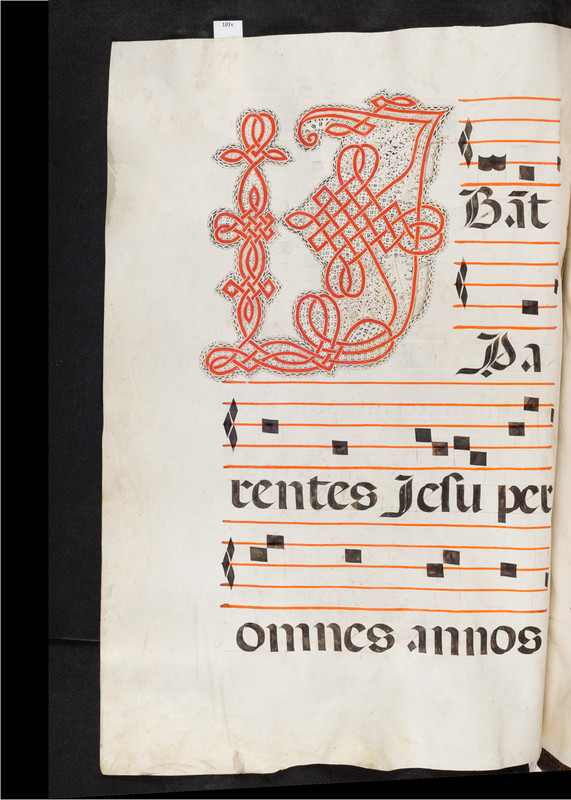 101v
IBāt
Pa
rentes Jesu per
omnes annos